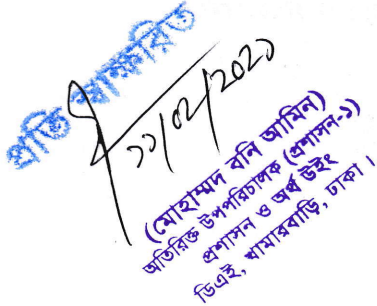 প্রতি স্বাক্ষরিত
১১/০২/২০২১
(মোহাম্মদ বনি আমিন)
অতিরিক্ত উপপরিচালক (প্রশাসন-১)
প্রশাসন ও অর্থ উইং
ডিএই, খামারবাড়ি, ঢাকা।